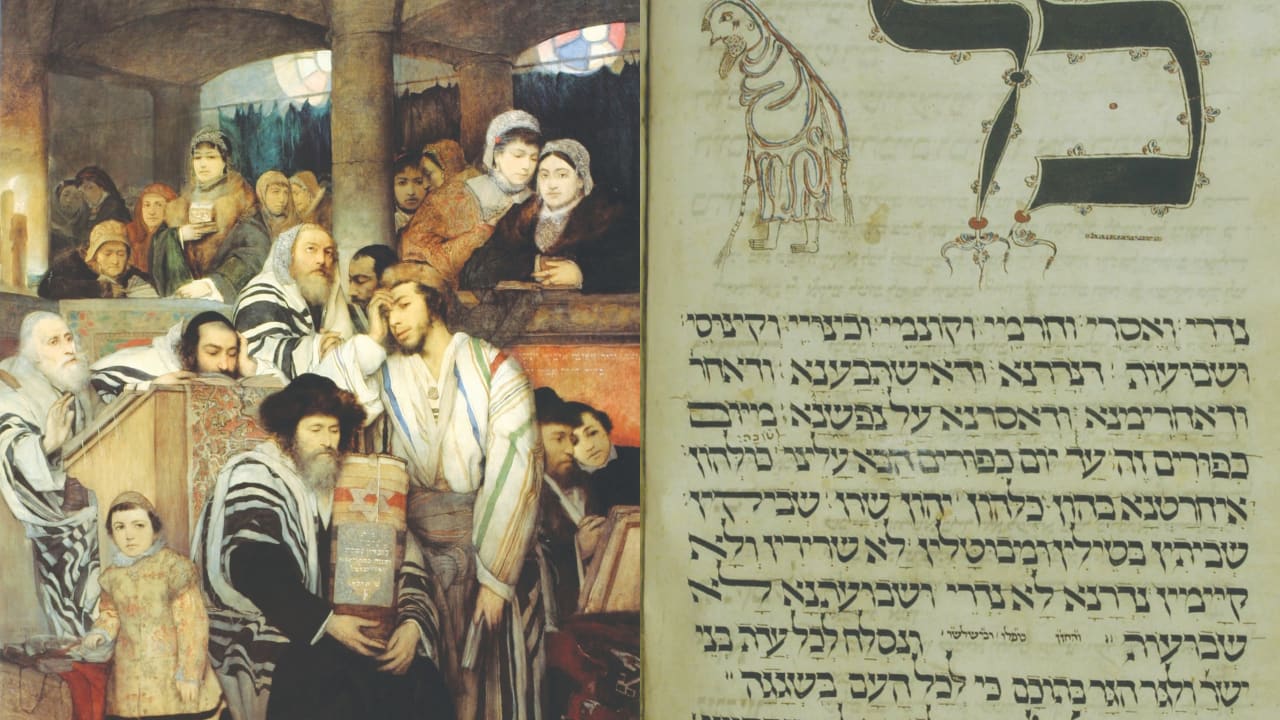 כל
נדרי ואסרי וחרמי וקונמי וכינויי וקינוסי
ושבועות דנדרנא ודאישתבענא ודאחר
ודאחרימנא ודאסרנא על נפשנא מיום
כפורים זה עד יום כפורים הבא עלינו כולהון
איחרטנא בהון כלהון יהון שרן שביקין
שביתין בטילין ומבוטלין לא שרירין ולא
קיימין נדרנא לא נדרי ושבועתנא לא
שבועות והחזן ונסלח לכל עדת בני
ישר ולגר הגר בתוכם כי לכל העם בשגגה